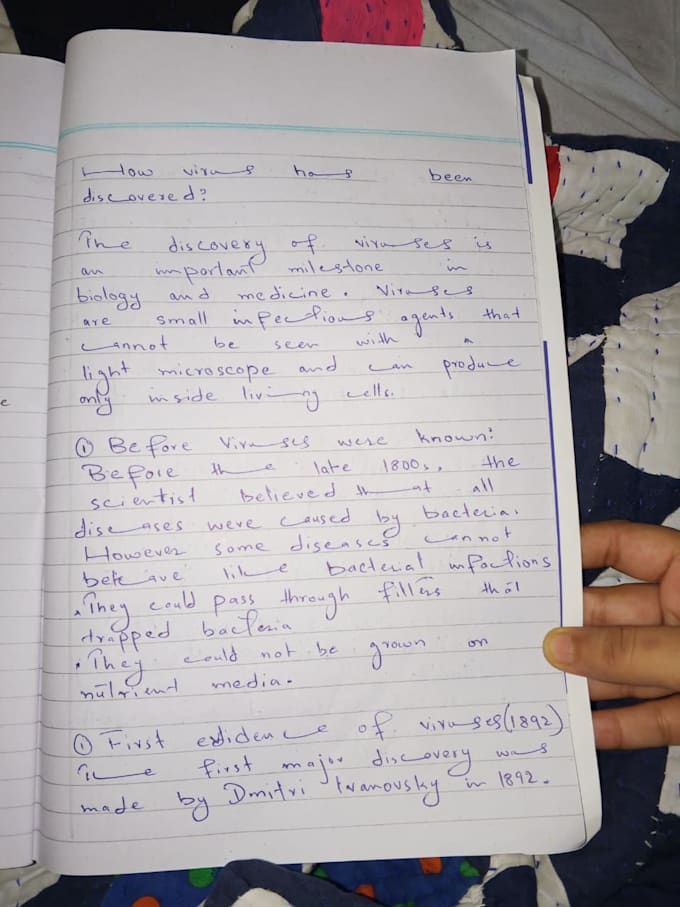 How virus has been
discovered?
The discovery of viruses is
an important milestone in
biology and medicine. Viruses
are small infectious agents that
cannot be seen with a
light microscope and can produce
only inside living cells.
① Before Viruses were known:
Before the late 1800s, the
scientist believed that all
diseases were caused by bacteria.
However some diseases cannot
behave like bacterial infactions
. They could pass through filters that
trapped bacteria
. They could not be grown on
nutrient media.
① First evidence of viruses (1892)
The first major discovery was
made by Dmitri Ivanovsky in 1892.